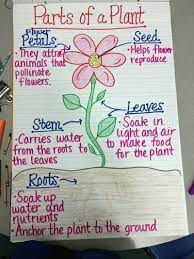 Parts of a Plant
flower
Petals
• They attract
animals that
pollinate
flowers.
Seed
• Helps flower
reproduce
Stem
• Carries water
from the roots to
the leaves
Leaves
• Soak in
light and air
to make food
for the plant
Roots
• Soak up
water and
nutrients
• Anchor the plant to the ground